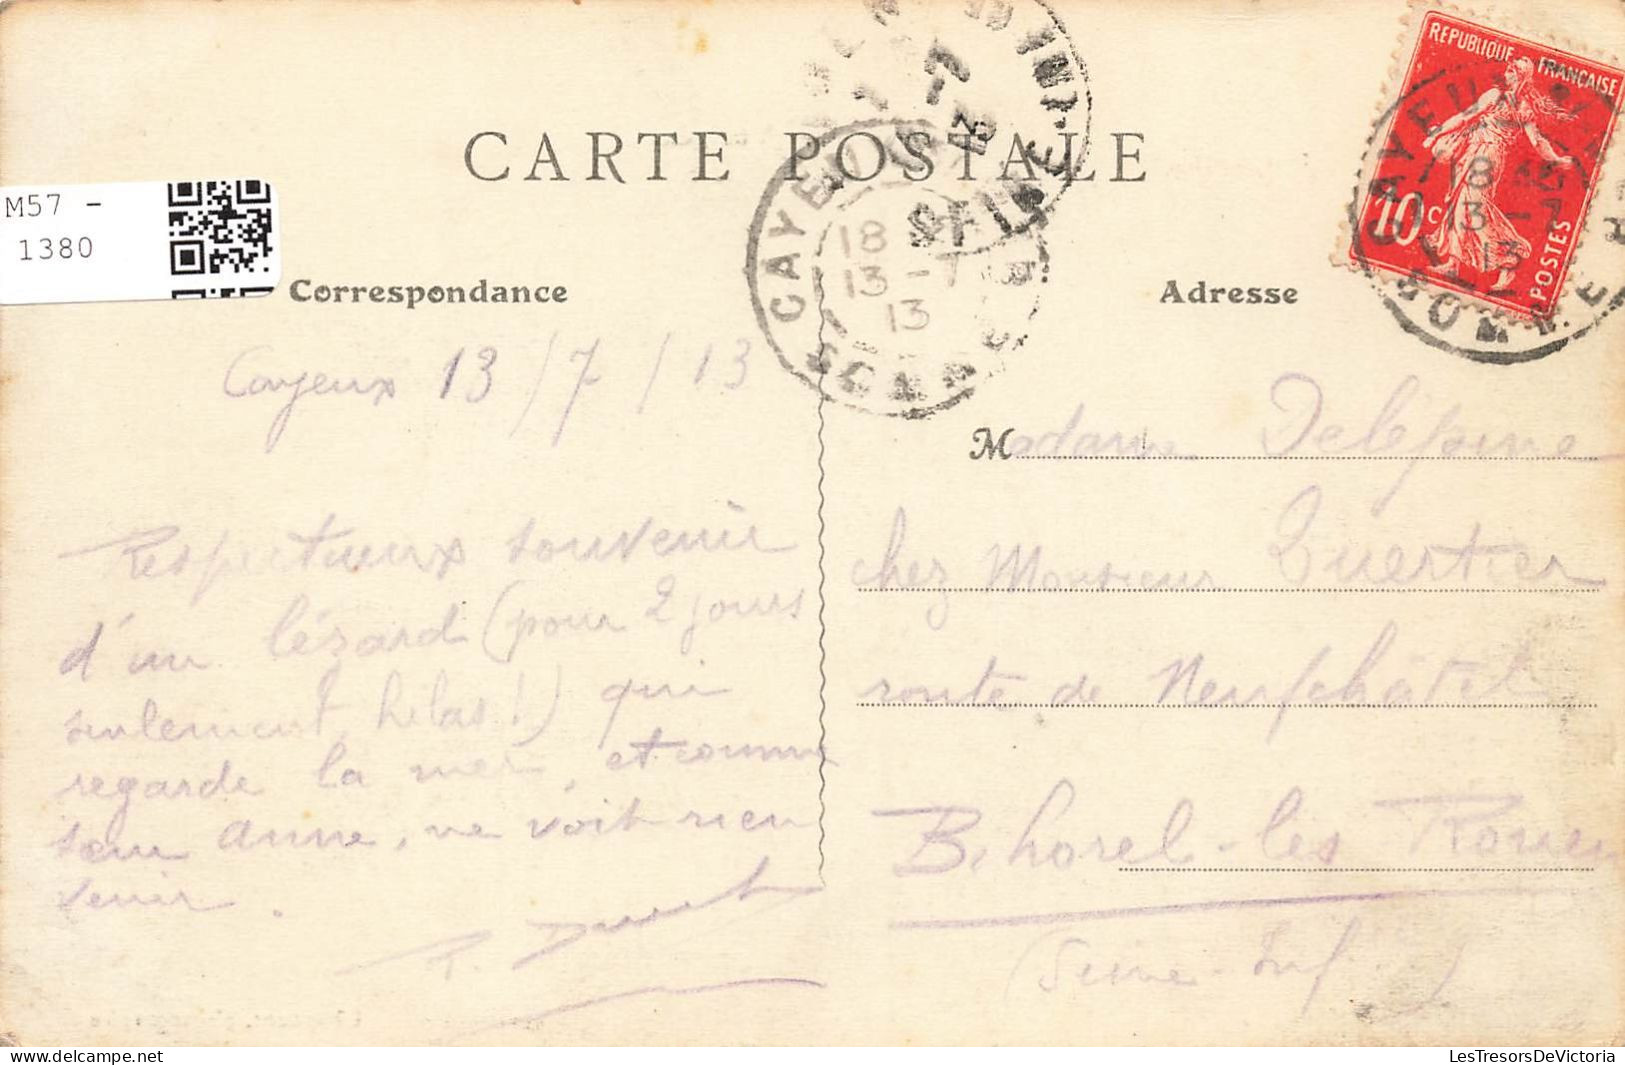 CARTE POSTALE
M57 -
1380
Correspondance
Adresse
REPUBLIQUE FRANÇAISE
10 c
POSTES
CAYEUX
18
13 - 7
13
SOMME
CAYEUX
18
13 - 7
13
SOMME
- 7
13
SEINE INF
Cayeux 13/7/13
Respectueux souvenir
d'un lézard (pour 2 jours
seulement, hélas!) qui
regarde la mer, et comme
sœur Anne, ne voit rien
venir.
Madame Delépine
chez Monsieur Quertier
route de Neufchâtel
Bihorel-lès Rouen
(Seine-Inf)
LesTresorsDeVictoria
delcampe.net